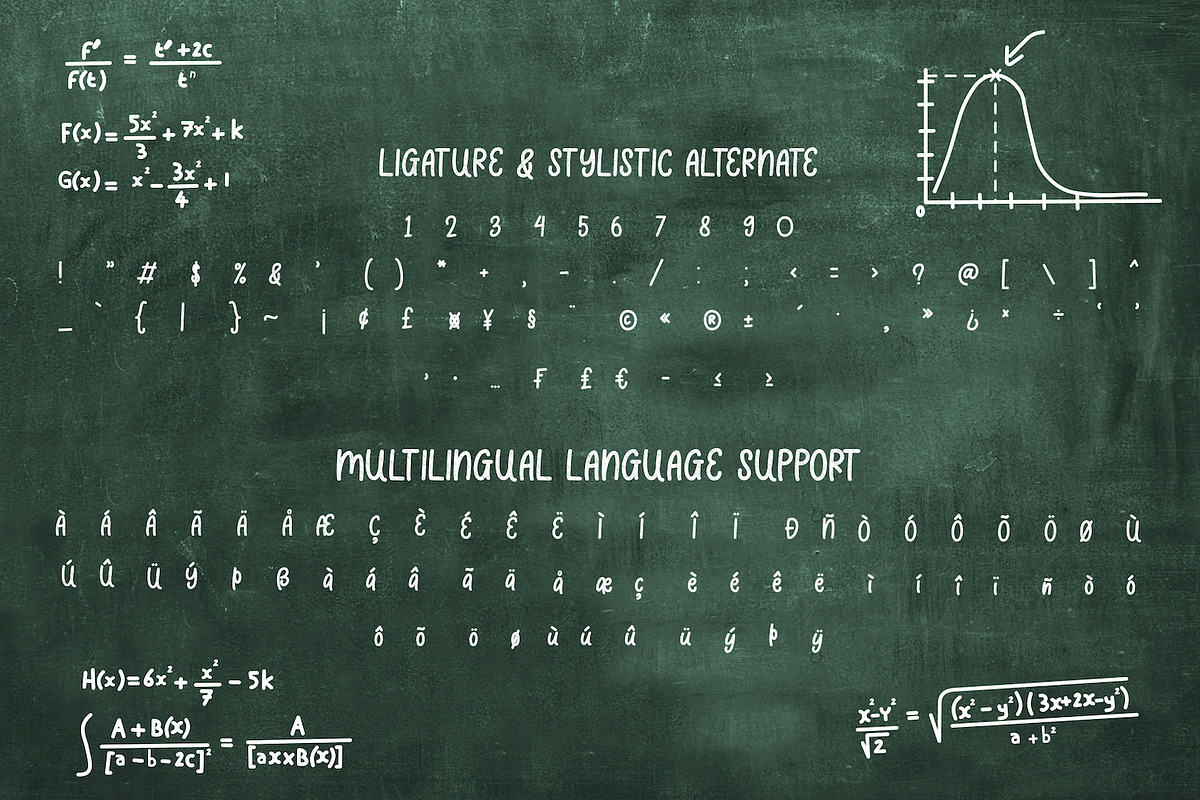 F' / F(t) = t' + 2c / t^n
F(x) = 5x² / 3 + 7x² + k
G(x) = x² - 3x² / 4 + 1
0
LIGATURE & STYLISTIC ALTERNATE
1 2 3 4 5 6 7 8 9 0
! " # $ % & ' ( ) * + , - . / : ; < = > ? @ [ \ ] ^
_ ` { | } ~ ¡ ¢ £ ¤ ¥ § ¨ © « ® ± ´ · ¸ » ¿ × ÷ ‘ ’
‚ • … ₣ ₤ € − ≤ ≥
MULTILINGUAL LANGUAGE SUPPORT
À Á Â Ã Ä Å Æ Ç È É Ê Ë Ì Í Î Ï Ð Ñ Ò Ó Ô Õ Ö Ø Ù
Ú Û Ü Ý Þ ß à á â ã ä å æ ç è é ê ë ì í î ï ñ ò ó
ô õ ö ø ù ú û ü ý þ ÿ
H(x) = 6x² + x² / 7 - 5k
∫ A + B(x) / [a - b - 2c]² = A / [axxB(x)]
x² - Y² / √2 = √ (x² - y²)(3x+2x-y²) / a + b²